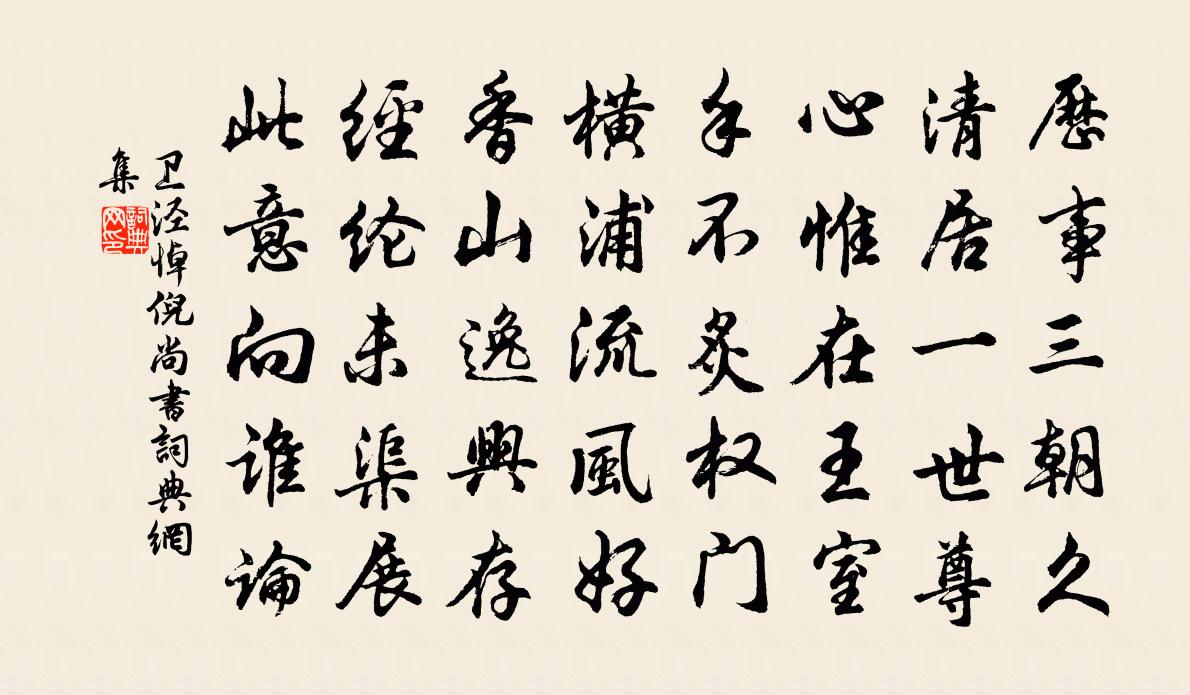 歷事三朝久
清居一世尊
心惟在王室
手不炙权门
横浦流風好
香山逸興存
經纶未渠展
此意向谁論
卫泾悼倪尚書詞典網
集
詞典
网印